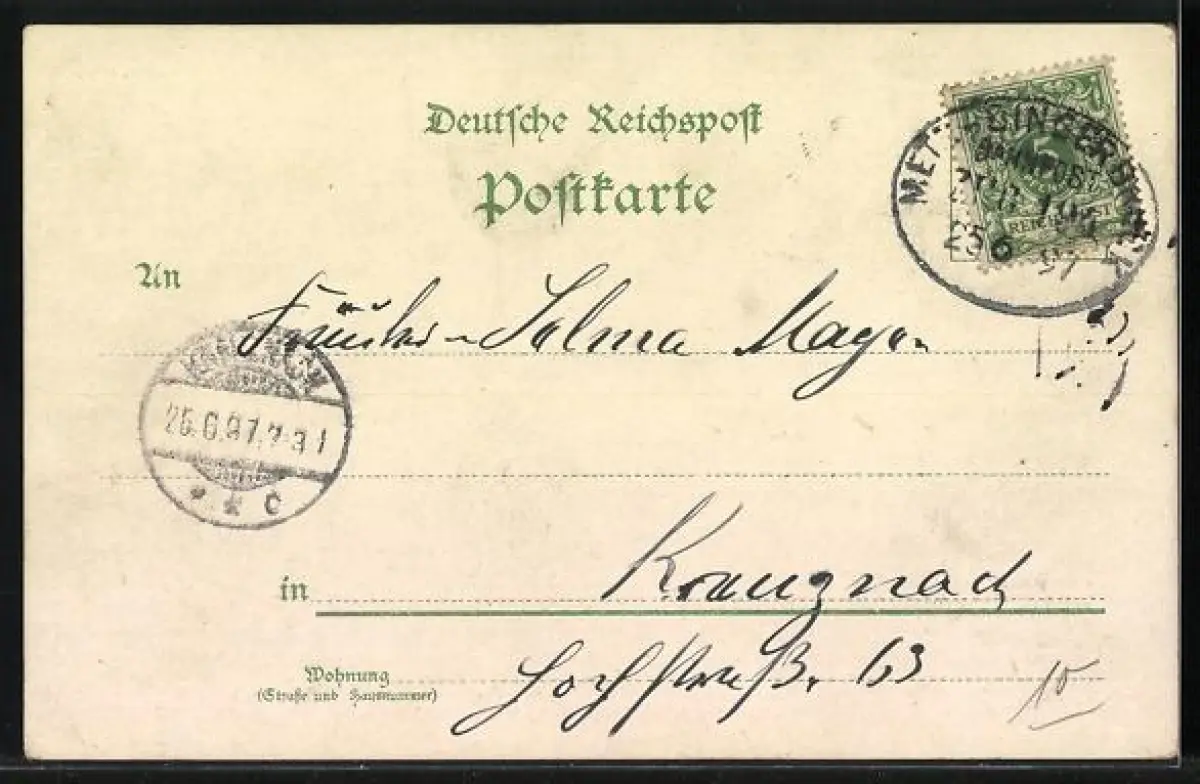 Deutsche Reichspost
Postkarte
BAHNPOST
ZUG 104
25 6 97
REICHSPOST
An
Fräulein Selma Mayer
25.6.97.7-8 N
* * c
in Kreuznach
Wohnung
(Straße und Hausnummer)
Hochstraße 63
10